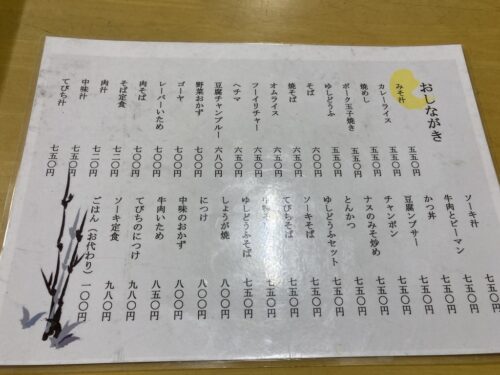 おしながき
みそ汁 五五〇円
カレーライス 五五〇円
焼めし 五五〇円
ポーク玉子焼き 五五〇円
ゆしどうふ 五五〇円
そば 六〇〇円
焼そば 六五〇円
オムライス 六五〇円
フーイリチャー 六五〇円
ヘチマ 六五〇円
豆腐チャンプルー 六八〇円
野菜おかず 七〇〇円
ゴーヤ 七〇〇円
レーバーいため 七〇〇円
肉そば 七〇〇円
そば定食 七二〇円
肉汁 七二〇円
中味汁 七五〇円
てびち汁 七五〇円
ソーキ汁 七五〇円
牛肉とピーマン 七五〇円
かつ丼 七五〇円
豆腐ンブサー 七五〇円
チャンポン 七五〇円
ナスのみそ炒め 七五〇円
とんかつ 七五〇円
ゆしどうふセット 七五〇円
ソーキそば 七五〇円
てびちそば 七五〇円
七五〇円
ゆしどうふそば 七五〇円
しょうが焼 八〇〇円
につけ 八〇〇円
中味のおかず 八〇〇円
牛肉いため 八五〇円
てびちのにつけ 八五〇円
ソーキ定食 九八〇円
ごはん(お代わり) 一〇〇円